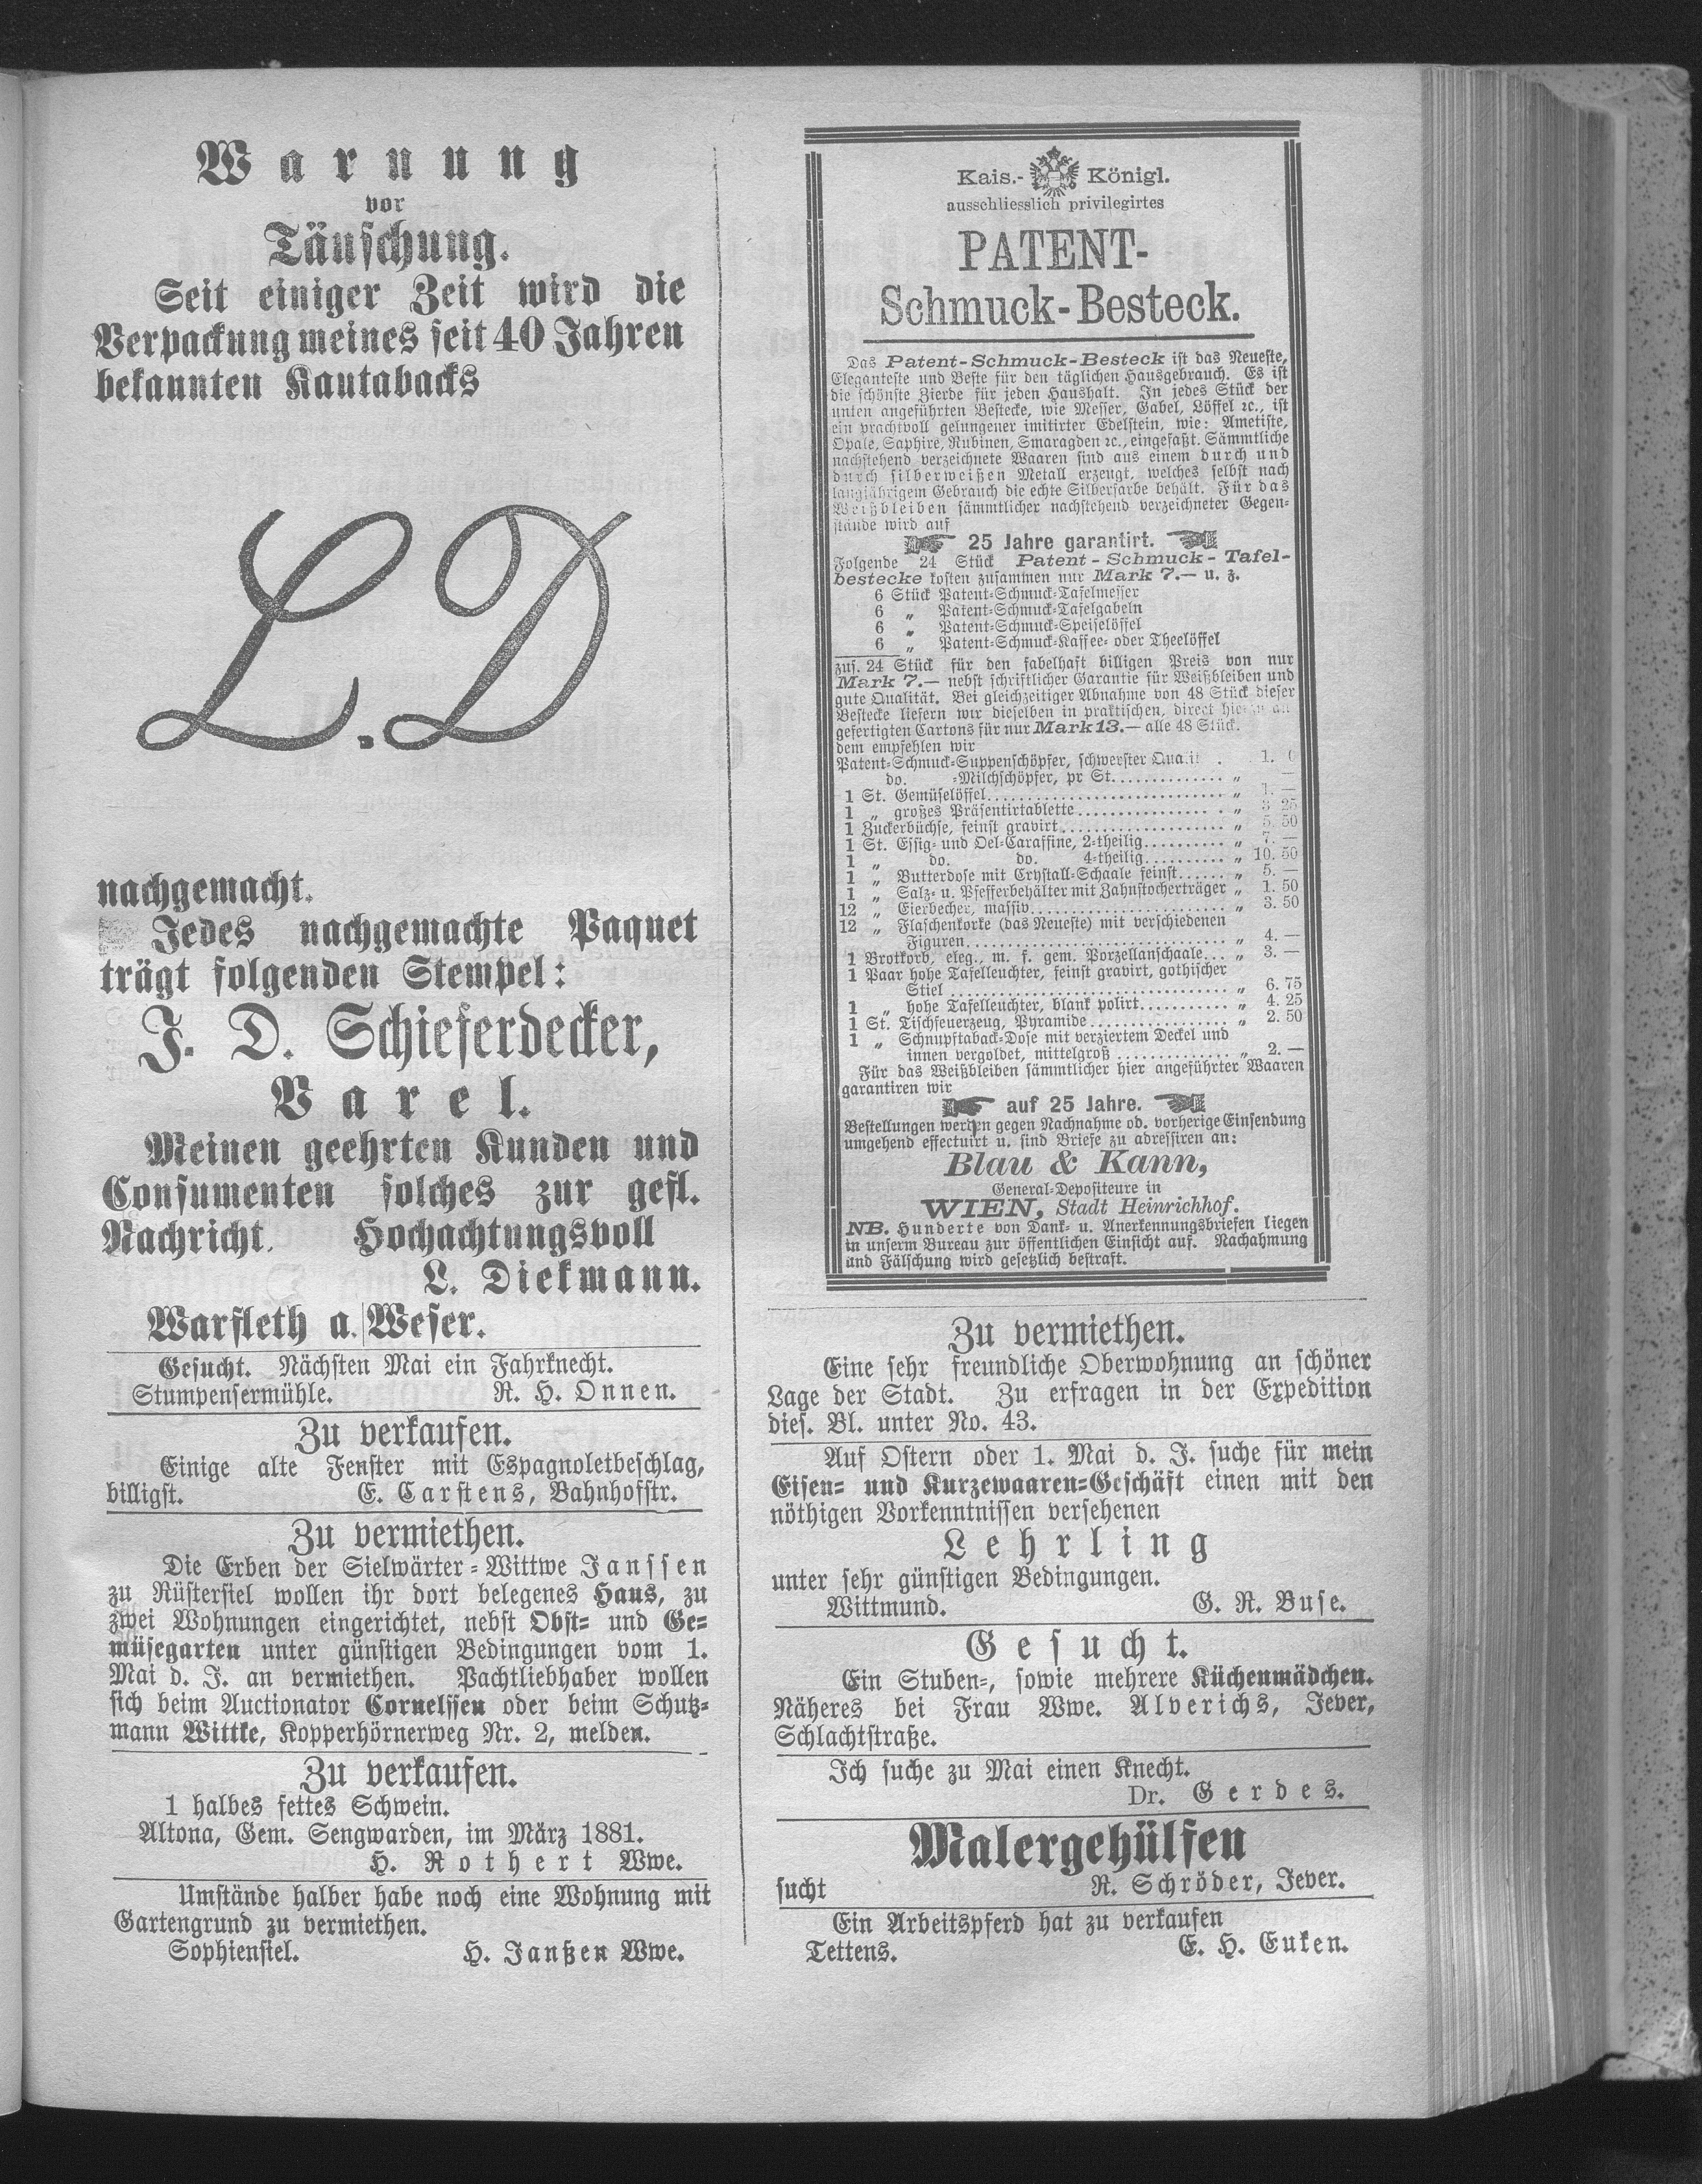 Warnung
vor
Täuschung.
Seit einiger Zeit wird die
Verpackung meines seit 40 Jahren
bekannten Kautabacks
L. D
nachgemacht.
Jedes nachgemachte Paquet
trägt folgenden Stempel:
J. D. Schieferdecker,
Varel.
Meinen geehrten Kunden und
Consumenten solches zur gefl.
Nachricht. Hochachtungsvoll
L. Diekmann.
Warfleth a. Weser.
Gesucht. Nächsten Mai ein Fahrknecht.
Stumpensermühle. R. H. Onnen.
Zu verkaufen.
Einige alte Fenster mit Espagnoletbeschlag,
billigst. E. Carstens, Bahnhofstr.
Zu vermiethen.
Die Erben der Sielwärter-Wittwe Janssen
zu Rüstersiel wollen ihr dort belegenes Haus, zu
zwei Wohnungen eingerichtet, nebst Obst- und Ge-
müsegarten unter günstigen Bedingungen vom 1.
Mai d. J. an vermiethen. Pachtliebhaber wollen
sich beim Auctionator Cornelssen oder beim Schutz-
mann Wittke, Kopperhörnerweg Nr. 2, melden.
Zu verkaufen.
1 halbes fettes Schwein.
Altona, Gem. Sengwarden, im März 1881.
H. Rothert Wwe.
Umstände halber habe noch eine Wohnung mit
Gartengrund zu vermiethen.
Sophiensiel. H. Janßen Wwe.
Kais.- Königl.
ausschliesslich privilegirtes
PATENT-
Schmuck-Besteck.
Das Patent-Schmuck-Besteck ist das Neueste,
Eleganteste und Beste für den täglichen Hausgebrauch. Es ist
die schönste Zierde für jeden Haushalt. In jedes Stück der
unten angeführten Bestecke, wie Messer, Gabel, Löffel ꝛc., ist
ein prachtvoll gelungener imitirter Edelstein, wie: Ametiste,
Opale, Saphire, Rubinen, Smaragden ꝛc., eingefaßt. Sämmtliche
nachstehend verzeichnete Waaren sind aus einem durch und
durch silberweißen Metall erzeugt, welches selbst nach
langjährigem Gebrauch die echte Silberfarbe behält. Für das
Weißbleiben sämmtlicher nachstehend verzeichneter Gegen-
stände wird auf
25 Jahre garantirt.
Folgende 24 Stück Patent-Schmuck-Tafel-
bestecke kosten zusammen nur Mark 7.— u. z.
6 Stück Patent-Schmuck-Tafelmesser
6 „ Patent-Schmuck-Tafelgabeln
6 „ Patent-Schmuck-Speiselöffel
6 „ Patent-Schmuck-Kaffee- oder Theelöffel
zus. 24 Stück für den fabelhaft billigen Preis von nur
Mark 7.— nebst schriftlicher Garantie für Weißbleiben und
gute Qualität. Bei gleichzeitiger Abnahme von 48 Stück dieser
Bestecke liefern wir dieselben in praktischen, direct hierzu an
gefertigten Cartons für nur Mark 13.— alle 48 Stück.
dem empfehlen wir
Patent-Schmuck-Suppenschöpfer, schwerster
do. -Milchschöpfer, pr St. „
1 St. Gemüselöffel „ 1. —
1 „ großes Präsentirtablette „ 3 25
1 Zuckerbüchse, feinst gravirt „ 5. 50
1 St. Essig- und Oel-Caraffine, 2-theilig „ 7. —
1 „ do. do. 4-theilig „ 10. 50
1 „ Butterdose mit Crystall-Schaale feinst „ 5. —
1 „ Salz- u. Pfefferbehälter mit Zahnstocherträger „ 1. 50
12 „ Eierbecher, massiv „ 3. 50
12 „ Flaschenkorke (das Neueste) mit verschiedenen
Figuren „ 4. —
1 Brotkorb, eleg., m. f. gem. Porzellanschaale „ 3. —
1 Paar hohe Tafelleuchter, feinst gravirt, gothischer
Stiel „ 6. 75
1 „ hohe Tafelleuchter, blank polirt „ 4. 25
1 St. Tischfeuerzeug, Pyramide „ 2. 50
1 „ Schnupftaback-Dose mit verziertem Deckel und
innen vergoldet, mittelgroß „ 2. —
Für das Weißbleiben sämmtlicher hier angeführter Waaren
garantiren wir
auf 25 Jahre.
Bestellungen werden gegen Nachnahme od. vorherige Einsendung
umgehend effectuirt u. sind Briefe zu adressiren an:
Blau & Kann,
General-Depositeure in
WIEN, Stadt Heinrichhof.
NB. Hunderte von Dank- u. Anerkennungsbriefen liegen
in unserm Bureau zur öffentlichen Einsicht auf. Nachahmung
und Fälschung wird gesetzlich bestraft.
Zu vermiethen.
Eine sehr freundliche Oberwohnung an schöner
Lage der Stadt. Zu erfragen in der Expedition
dies. Bl. unter No. 43.
Auf Ostern oder 1. Mai d. J. suche für mein
Eisen- und Kurzewaaren-Geschäft einen mit den
nöthigen Vorkenntnissen versehenen
Lehrling
unter sehr günstigen Bedingungen.
Wittmund. G. R. Buse.
Gesucht.
Ein Stuben-, sowie mehrere Küchenmädchen.
Näheres bei Frau Wwe. Alverichs, Jever,
Schlachtstraße.
Ich suche zu Mai einen Knecht.
Dr. Gerdes.
Malergehülfen
sucht R. Schröder, Jever.
Ein Arbeitspferd hat zu verkaufen
Tettens. E. H. Euken.